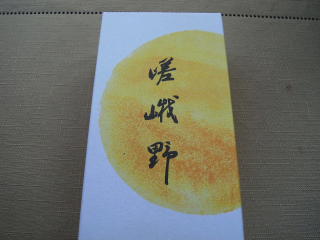 嵯峨野